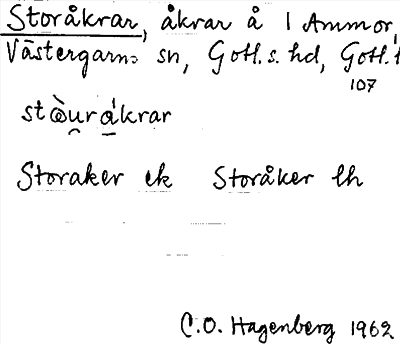 Storåkrar, åkrar å 1 Ammor,
Västergarns sn, Gotl. s. hd, Gotl. l
107
stòu̯rákrar
Storaker ek Storåker lh
C.O. Hagenberg 1962